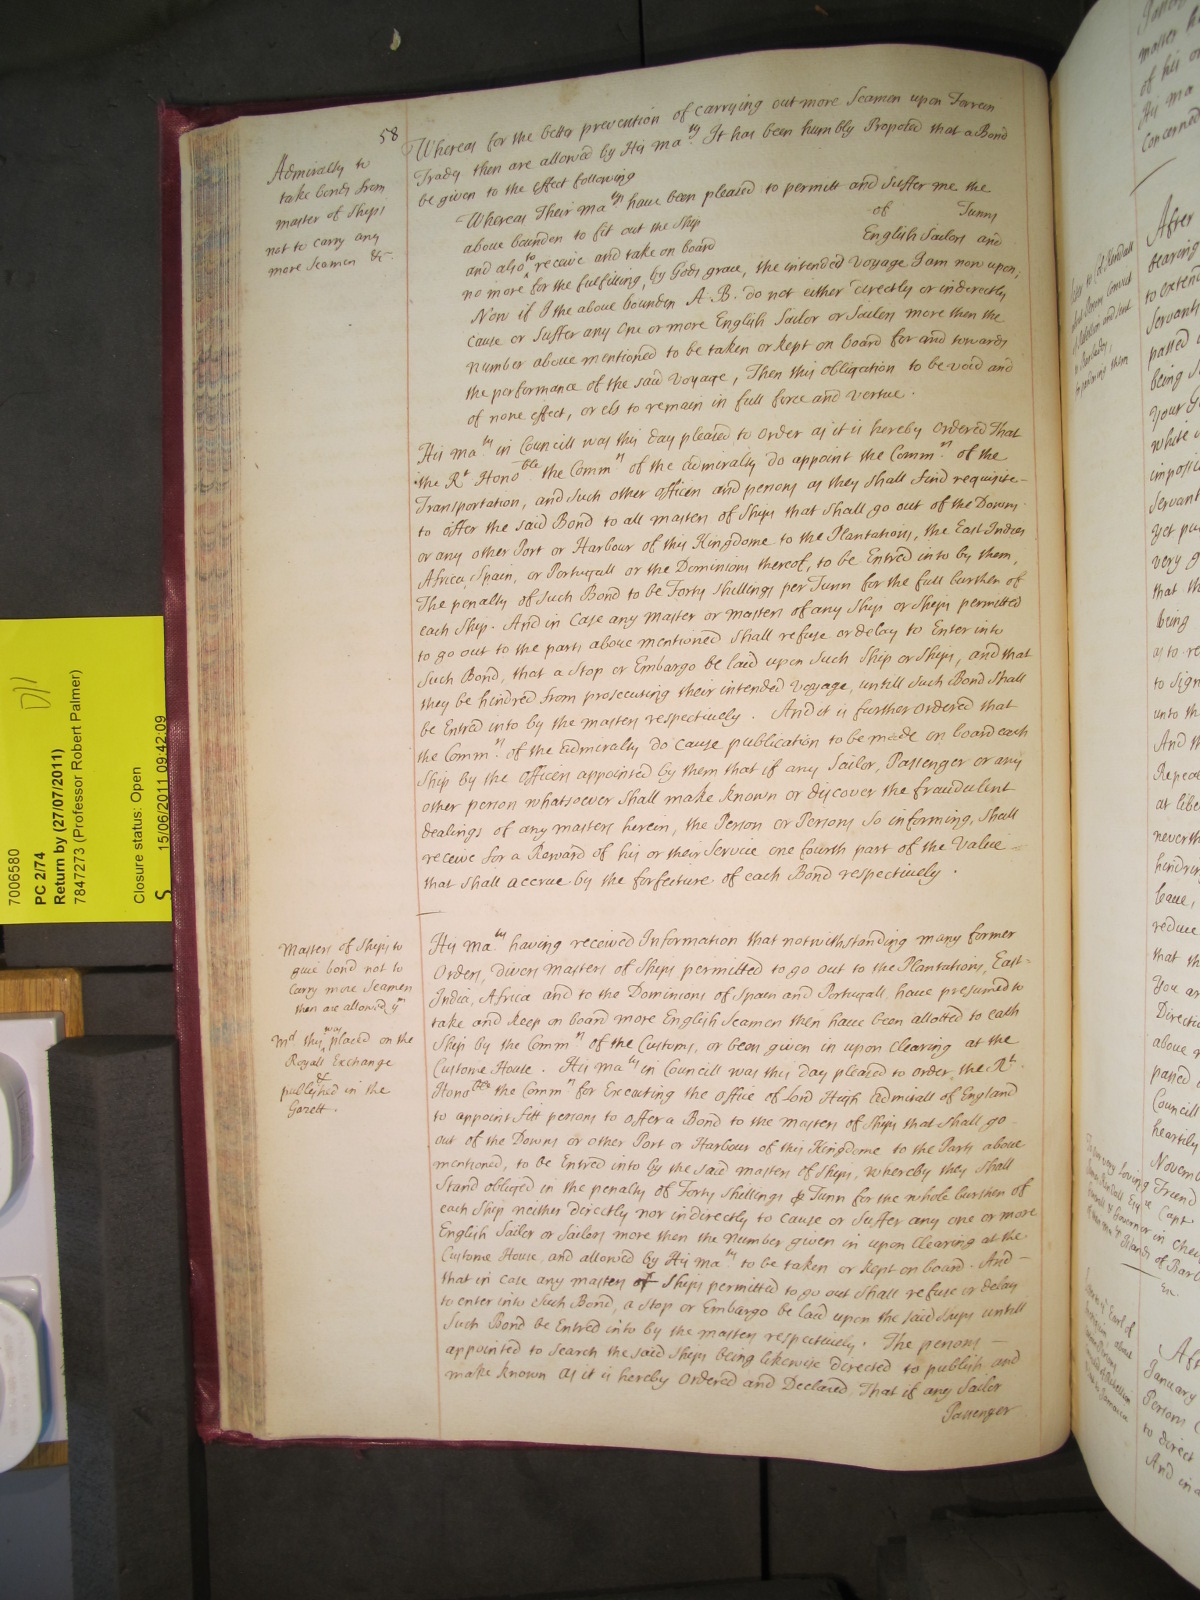 58
Admiralty to
take bonds from
master of Ships
not to carry any
more Seamen &c.
Whereas for the better prevention of carrying out more Seamen upon Forrein
Trades then are allowed by His Ma.ty It has been humbly Proposed that a Bond
be given to the effect following
Whereas Their Ma.tys have been pleased to permitt and Suffer me the
above bounden to fit out the Ship of Tunns
and also to receive and take on board English Sailors and
no more for the fulfilling, by Gods grace, the intended Voyage I am now upon;
Now if I the above bounden A. B. do not either directly or indirectly
cause or Suffer any One or more English Sailor or Sailers more then the
number above mentioned to be taken or kept on board for and towards
the performance of the said Voyage, Then this obligation to be void and
of none effect, or els to remain in full force and vertue.
His Ma.ty in Councill was this day pleased to order as it is hereby ordered That
the R.t Hono.ble the Comm.rs of the Admiralty do appoint the Comm.rs of the
Transportation, and such other officers and persons as they shall find requisite
to offer the said Bond to all masters of Ships that shall go out of the Downs
or any other Port or Harbour of this Kingdome to the Plantations, the East Indies
Africa, Spain, or Portugall or the Dominions thereof, to be Entred into by them,
The penalty of such Bond to be Forty Shillings per Tunn for the full burthen of
each Ship. And in Case any Master or masters of any Ship or Ships permitted
to go out to the parts above mentioned shall refuse or delay to Enter into
such Bond, that a Stop or Embargo be laid upon such Ship or Ships, and that
they be hindred from prosecuting their intended Voyage, untill such Bond shall
be Entred into by the masters respectively. And it is further ordered that
the Comm.rs of the Admiralty do cause publication to be made on board each
Ship by the officers appointed by them that if any Sailor, Passenger or any
other person whatsoever shall make known or discover the fraudulent
dealings of any masters herein, the Person or Persons so informing, shall
receive for a Reward of his or their Service one fourth part of the Value
that shall accrue by the forfeiture of each Bond respectively.
Masters of Ships to
give bond not to
Carry more Seamen
then are allowed ym
Md this was placed on the
Royall Exchange
&
published in the
Gazett.
His Ma.ty having received Information that notwithstanding many former
Orders, divers Masters of Ships permitted to go out to the Plantations, East-
India, Africa and to the Dominions of Spain and Portugall, have presumed to
take and keep on board more English Seamen then have been allotted to each
Ship by the Comm.rs of the Customs, or been given in upon Clearing at the
Custome House. His Ma.ty in Councill was this day pleased to order, the R.t
Hono.ble the Comm.rs for Executing the office of Lord High Admirall of England
to appoint fitt persons to offer a Bond to the masters of Ships that shall go
out of the Downs or other Port or Harbour of this Kingdome to the Parts above
mentioned, to be Entred into by the said masters of Ships, whereby they shall
stand obliged in the penalty of Forty Shillings p Tunn for the whole burthen of
each Ship neither directly nor indirectly to cause or suffer any one or more
English Sailor or Sailors more then the Number given in upon Clearing at the
Custome House and allowed by His Ma.ty to be taken or kept on board. And
that in case any masters of Ships permitted to go out shall refuse or delay
to enter into such Bond, a Stop or Embargo be laid upon the said Ships untill
such Bond be Entred into by the masters respectively. The persons
appointed to search the said Ships being likewise directed to publish and
make known as it is hereby Ordered and Declared That if any Sailor
Passenger
7006580
PC 2/74
Return by (27/07/2011)
7847273 (Professor Robert Palmer)
Closure status: Open
S 15/06/2011 09:42:09
D11
master
of his
His Ma
Concerned
After
bearing
to extend
Servants
passed
being
your
white
impossi
Servant
yet pu
very g
that th
being
as to re
to sign
unto th
And th
Repeal
at libe
neverth
hindran
leave,
reduce
that th
You ar
Directi
above
passed
Councill
heartily
Novemb
Friend
January
Persons
to direct
And in